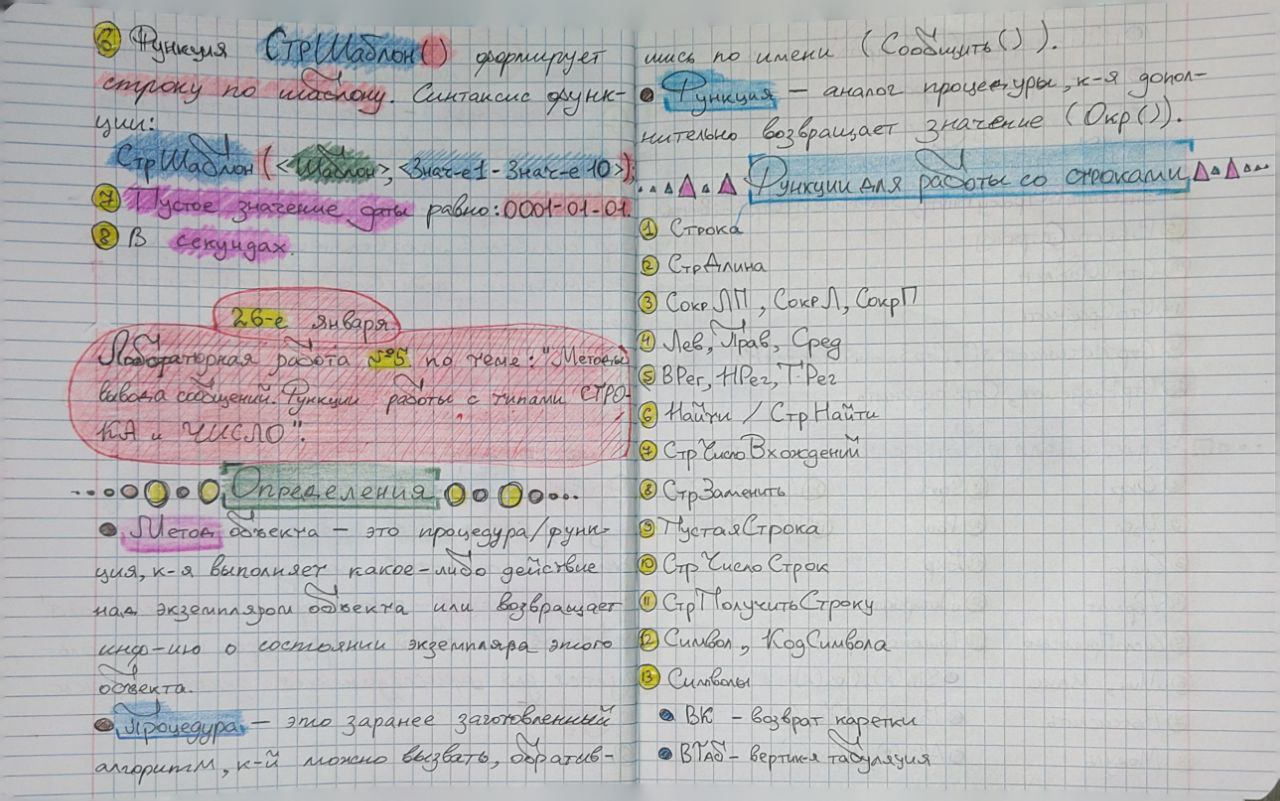 6 Функция СтрШаблон() формирует
строку по шаблону. Синтаксис функ-
ции:
СтрШаблон(<Шаблон>, <Знач-е1 - Знач-е 10>);
7 Пустое значение даты равно: 0001-01-01.
8 В секундах.
26-е января
Лабораторная работа №5 по теме: "Методы
вывода сообщений. Функции работы с типами СТРО-
КА и ЧИСЛО".
Определения
Метод объекта — это процедура/функ-
ция, к-я выполняет какое-либо действие
над экземпляром объекта или возвращает
инф-ию о состоянии экземпляра этого
объекта.
Процедура — это заранее заготовленный
алгоритм, к-й можно вызвать, обратив-
шись по имени (Сообщить()).
Функция — аналог процедуры, к-я допол-
нительно возвращает значение (Окр()).
Функции для работы со строками
1 Строка
2 СтрДлина
3 СокрЛП, СокрЛ, СокрП
4 Лев, Прав, Сред
5 ВРег, НРег, ТРег
6 Найти / СтрНайти
7 СтрЧислоВхождений
8 СтрЗаменить
9 ПустаяСтрока
10 СтрЧислоСтрок
11 СтрПолучитьСтроку
12 Символ, КодСимвола
13 Символы
ВК - возврат каретки
ВТаб - вертик-я табуляция